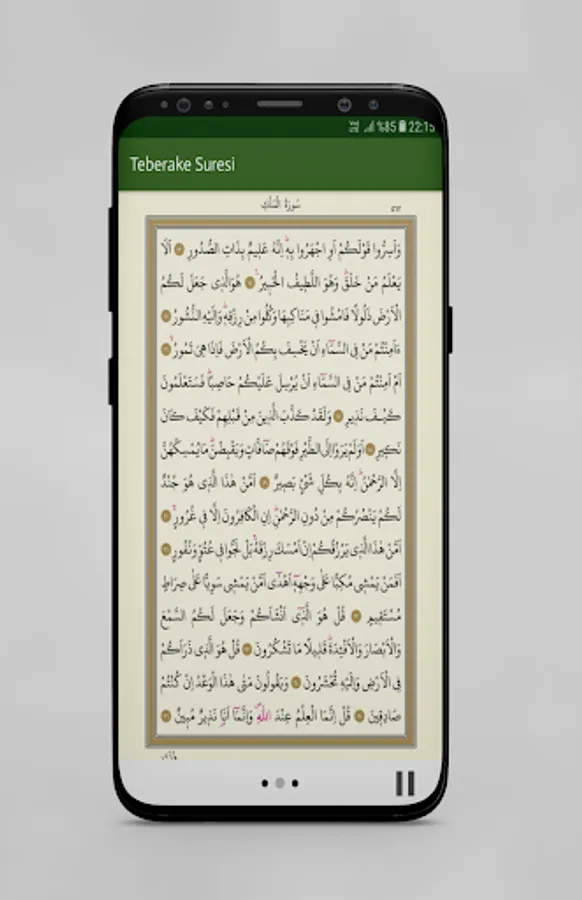 %85 22:15
Teberake Suresi
سُورَةُ الْمُلْكِ
وَاَسِرُّوا قَوْلَكُمْ اَوِ اجْهَرُوا بِهِ اِنَّهُ عَلِيمٌ بِذَاتِ الصُّدُورِ اَلَا
يَعْلَمُ مَنْ خَلَقَ وَهُوَ اللَّطِيفُ الْخَبِيرُ هُوَ الَّذِى جَعَلَ لَكُمُ
الْاَرْضَ ذَلُولًا فَامْشُوا فِى مَنَاكِبِهَا وَكُلُوا مِنْ رِزْقِهِ وَاِلَيْهِ النُّشُورُ
ءَاَمِنْتُمْ مَنْ فِى السَّمَاءِ اَنْ يَخْسِفَ بِكُمُ الْاَرْضَ فَاِذَا هِىَ تَمُورُ
اَمْ اَمِنْتُمْ مَنْ فِى السَّمَاءِ اَنْ يُرْسِلَ عَلَيْكُمْ حَاصِبًا فَسَتَعْلَمُونَ
كَيْفَ نَذِيرِ وَلَقَدْ كَذَّبَ الَّذِينَ مِنْ قَبْلِهِمْ فَكَيْفَ كَانَ
نَكِيرِ اَوَلَمْ يَرَوْا اِلَى الطَّيْرِ فَوْقَهُمْ صَافَّاتٍ وَيَقْبِضْنَ مَا يُمْسِكُهُنَّ
اِلَّا الرَّحْمٰنُ اِنَّهُ بِكُلِّ شَىْءٍ بَصِيرٌ اَمَّنْ هٰذَا الَّذِى هُوَ جُنْدٌ
لَكُمْ يَنْصُرُكُمْ مِنْ دُونِ الرَّحْمٰنِ اِنِ الْكَافِرُونَ اِلَّا فِى غُرُورٍ
اَمَّنْ هٰذَا الَّذِى يَرْزُقُكُمْ اِنْ اَمْسَكَ رِزْقَهُ بَلْ لَجُّوا فِى عُتُوٍّ وَنُفُورٍ
اَفَمَنْ يَمْشِى مُكِبًّا عَلٰى وَجْهِهِ اَهْدٰى اَمَّنْ يَمْشِى سَوِيًّا عَلٰى صِرَاطٍ
مُسْتَقِيمٍ قُلْ هُوَ الَّذِى اَنْشَاَكُمْ وَجَعَلَ لَكُمُ السَّمْعَ
وَالْاَبْصَارَ وَالْاَفْئِدَةَ قَلِيلًا مَا تَشْكُرُونَ قُلْ هُوَ الَّذِى ذَرَاَكُمْ
فِى الْاَرْضِ وَاِلَيْهِ تُحْشَرُونَ وَيَقُولُونَ مَتٰى هٰذَا الْوَعْدُ اِنْ كُنْتُمْ
صَادِقِينَ قُلْ اِنَّمَا الْعِلْمُ عِنْدَ اللّٰهِ وَاِنَّمَا اَنَا نَذِيرٌ مُبِينٌ